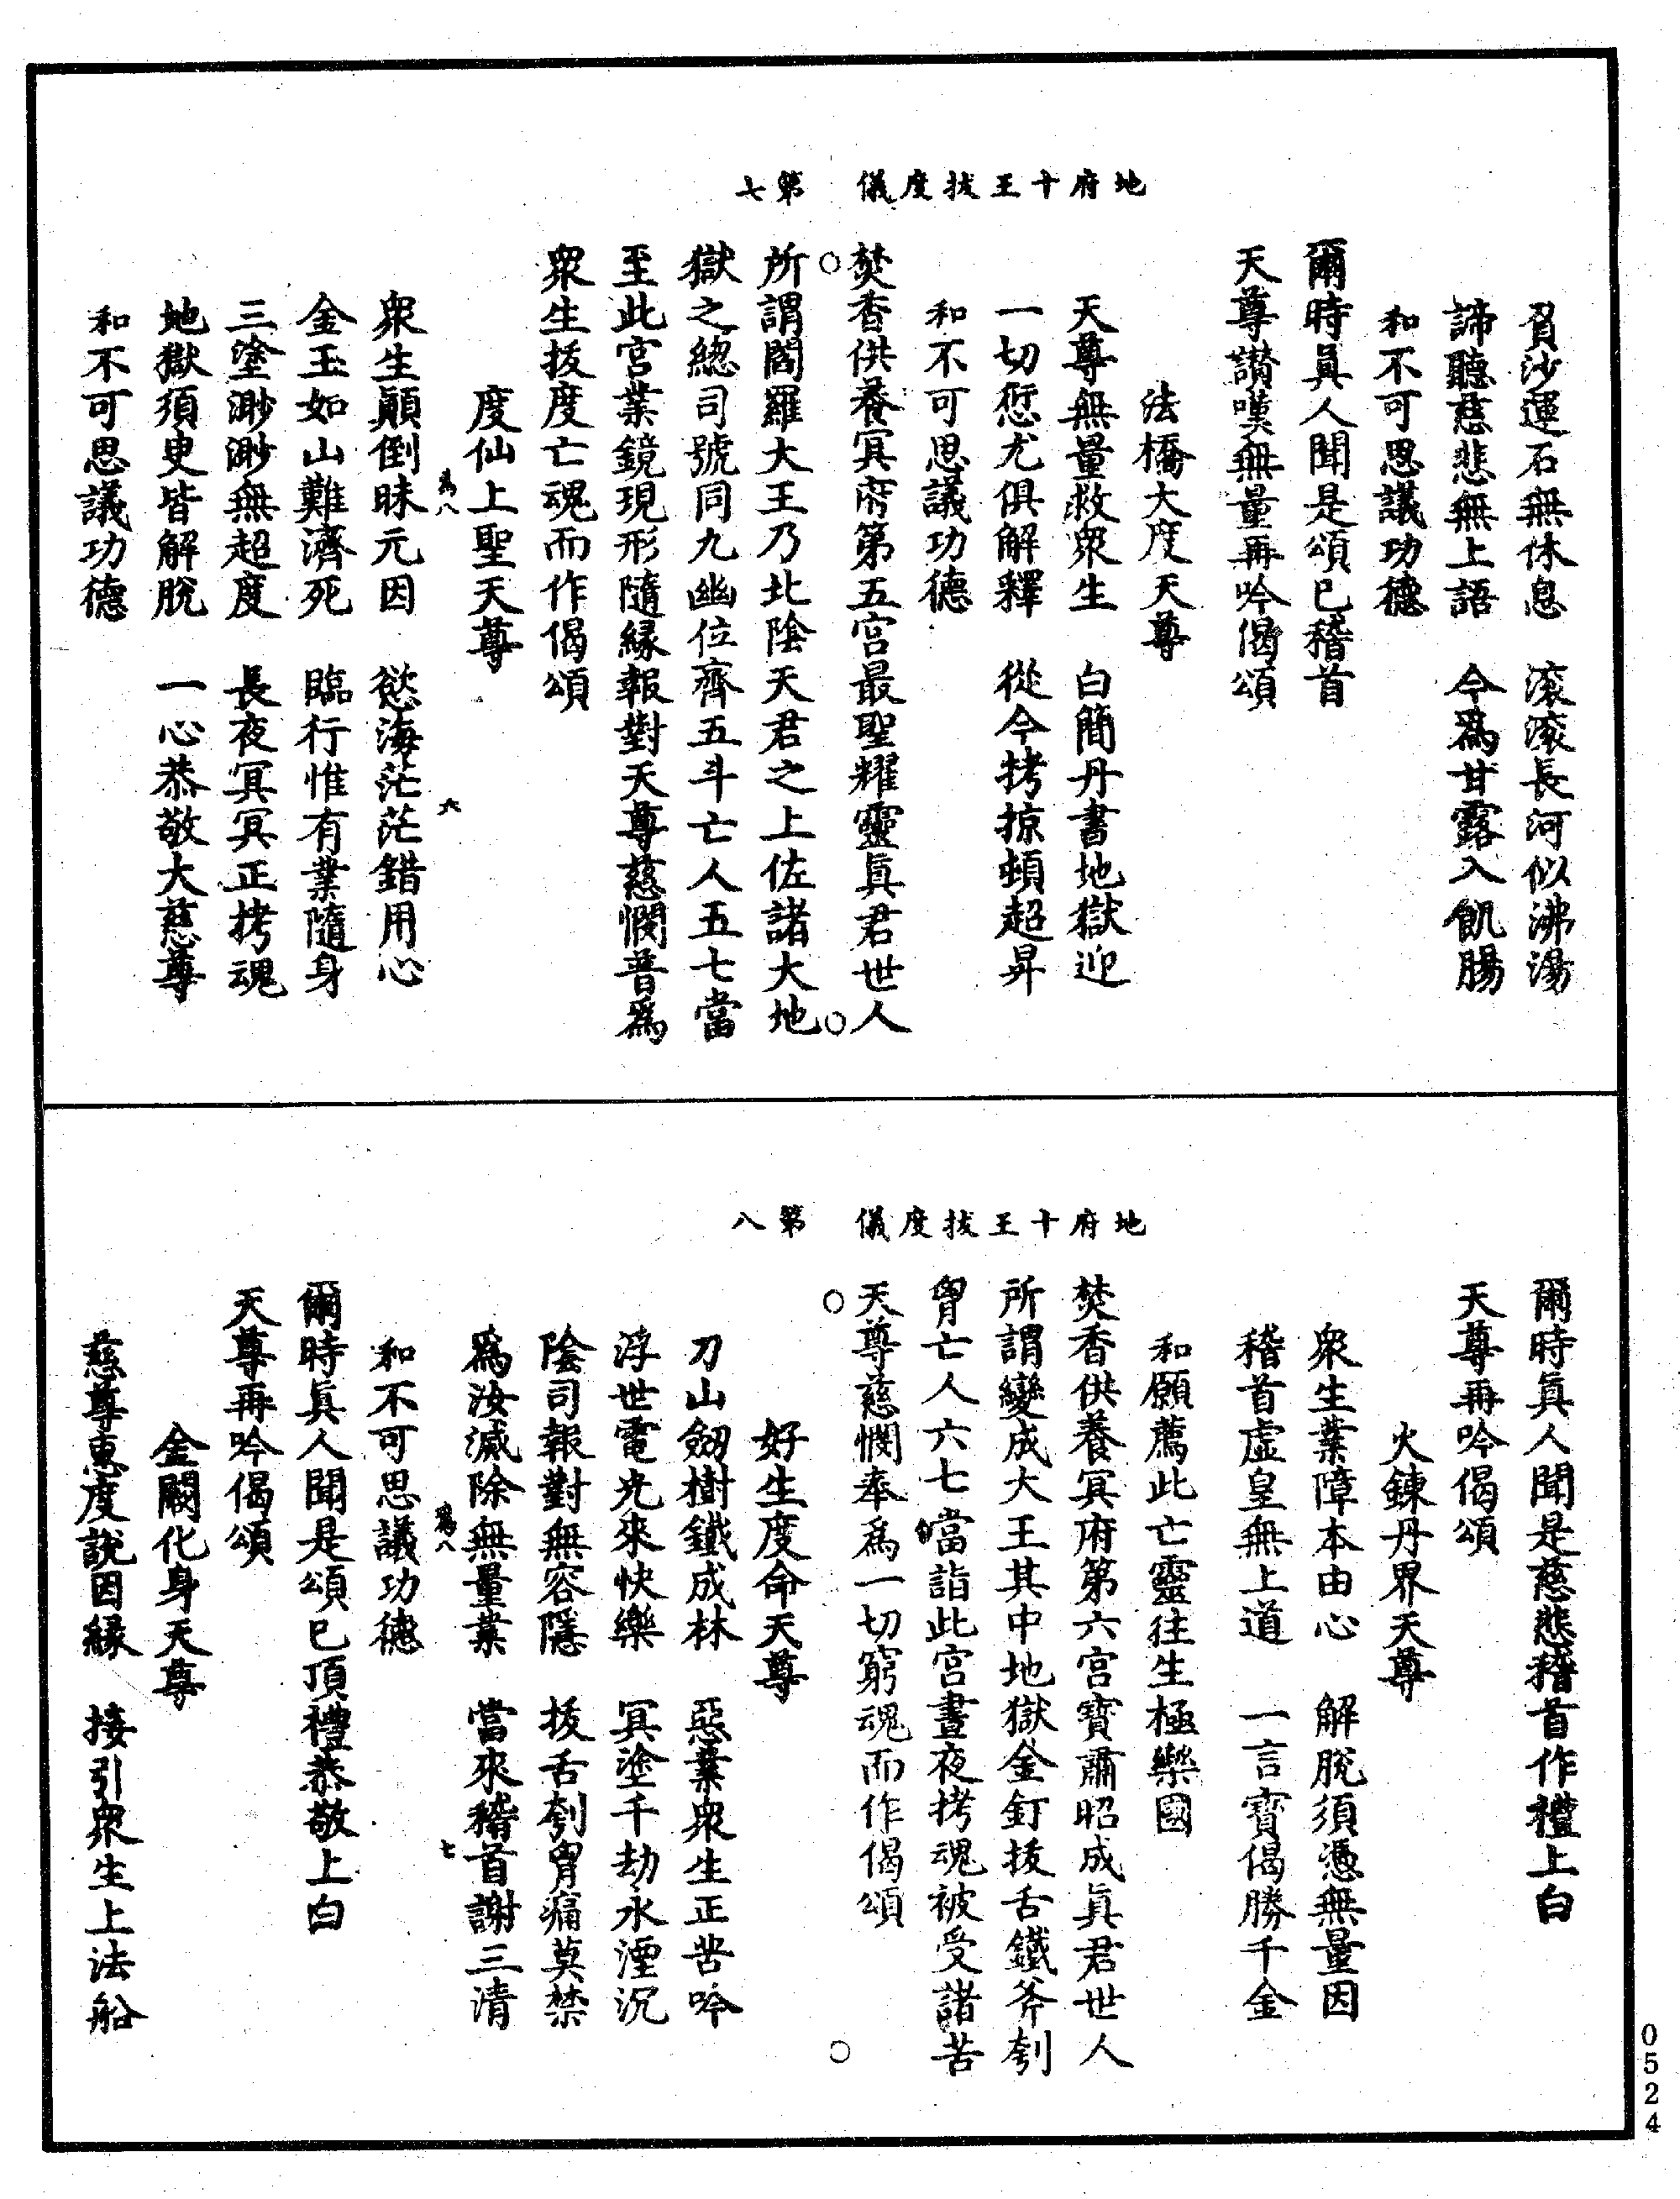 地府十王拔度儀　第七
負沙運石無休息　滚滚長河似沸湯
諦聽慈悲無上語　今爲甘露入飢腸
和不可思議功德
爾時眞人聞是頌已稽首
天尊讃嘆無量再吟偈頌
法橋大度天尊
天尊無量救衆生　白簡丹書地獄迎
一切愆尤俱解釋　從今拷掠頓超昇
和不可思議功德
焚香供養冥府第五宮最聖耀靈眞君世人
所謂閻羅大王乃北陰天君之上佐諸大地
獄之總司號同九幽位齊五斗亡人五七當
至此宮業鏡現形隨緣報對天尊慈憫普爲
衆生拔度亡魂而作偈頌
度仙上聖天尊
爲八　六
衆生顚倒昧元因　慾海茫茫錯用心
金玉如山難濟死　臨行惟有業隨身
三塗渺渺無超度　長夜冥冥正拷魂
地獄須臾皆解脫　一心恭敬大慈尊
和不可思議功德
地府十王拔度儀　第八
爾時眞人聞是慈悲稽首作禮上白
天尊再吟偈頌
火鍊丹界天尊
衆生業障本由心　解脫須憑無量因
稽首虛皇無上道　一言寶偈勝千金
和願薦此亡靈往生極樂國
焚香供養冥府第六宮寶肅昭成眞君世人
所謂變成大王其中地獄金釘拔舌鐵斧刳
胷亡人六七當詣此宮晝夜拷魂被受諸苦
天尊慈憫奉爲一切窮魂而作偈頌
好生度命天尊
刀山劒樹鐵成林　惡業衆生正苦吟
浮世電光來快樂　冥塗千劫永湮沉
陰司報對無容隱　拔舌刳胷痛莫禁
爲汝滅除無量業　當來稽首謝三清
爲八　七
和不可思議功德
爾時眞人聞是頌已頂禮恭敬上白
天尊再吟偈頌
金闕化身天尊
慈尊惠度說因緣　接引衆生上法船
0524